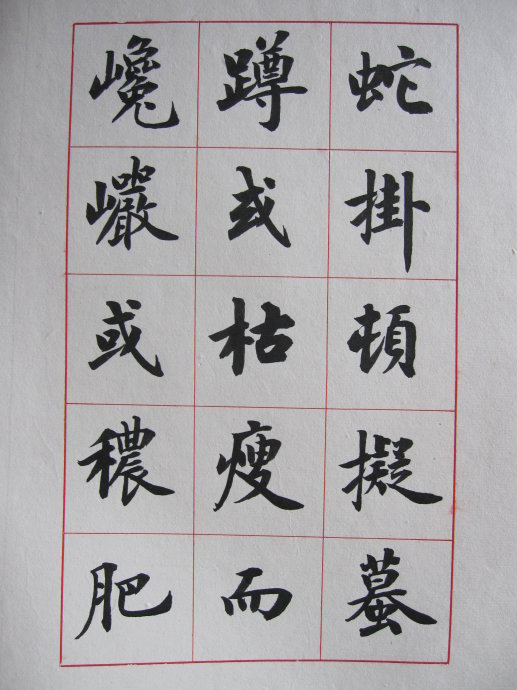 蛇掛頓擬蟇
蹲或枯瘦而
巉巗或穠肥